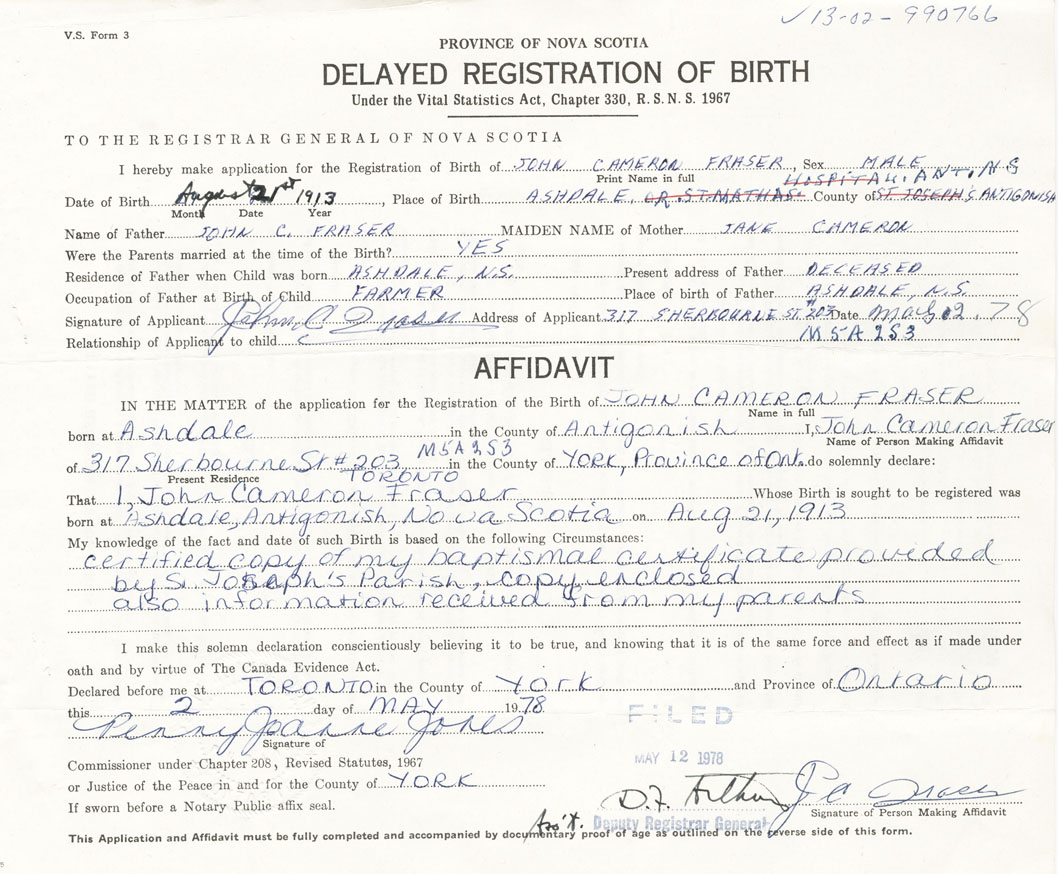 ✓13-02-990766
V.S. Form 3
PROVINCE OF NOVA SCOTIA
DELAYED REGISTRATION OF BIRTH
Under the Vital Statistics Act, Chapter 330, R. S. N. S. 1967
TO THE REGISTRAR GENERAL OF NOVA SCOTIA
I hereby make application for the Registration of Birth of JOHN CAMERON FRASER, Sex MALE
Print Name in full HOSPITAL, ANT, N.S
Date of Birth August 21st 1913, Place of Birth ASHDALE, County of ST. JOSEPH'S ANTIGONISH
Month Date Year
Name of Father JOHN C. FRASER MAIDEN NAME of Mother JANE CAMERON
Were the Parents married at the time of the Birth? YES
Residence of Father when Child was born ASHDALE, N.S. Present address of Father DECEASED
Occupation of Father at Birth of Child FARMER Place of birth of Father ASHDALE, N.S.
Signature of Applicant John C Fraser Address of Applicant 317 SHERBOURNE ST. #203 Date May 2, 78
Relationship of Applicant to child M5A 2S3
AFFIDAVIT
IN THE MATTER of the application for the Registration of the Birth of JOHN CAMERON FRASER
Name in full
born at Ashdale in the County of Antigonish I, John Cameron Fraser
Name of Person Making Affidavit
M5A 2S3
of 317 Sherbourne St #203 in the County of YORK, Province of Ont. do solemnly declare:
Present Residence TORONTO
That I, John Cameron Fraser Whose Birth is sought to be registered was
born at Ashdale, Antigonish, Nova Scotia on Aug 21, 1913
My knowledge of the fact and date of such Birth is based on the following Circumstances:
certified copy of my baptismal certificate provided
by St. Joseph's Parish, copy enclosed
also information received from my parents
I make this solemn declaration conscientiously believing it to be true, and knowing that it is of the same force and effect as if made under
oath and by virtue of The Canada Evidence Act.
Declared before me at TORONTO in the County of York and Province of Ontario
this 2 day of MAY 1978
Penny Joanne Jones
Signature of
FILED
Commissioner under Chapter 208, Revised Statutes, 1967
MAY 12 1978
or Justice of the Peace in and for the County of YORK
If sworn before a Notary Public affix seal.
D.F. J C Fraser
Signature of Person Making Affidavit
Ass't. Deputy Registrar General
This Application and Affidavit must be fully completed and accompanied by documentary proof of age as outlined on the reverse side of this form.